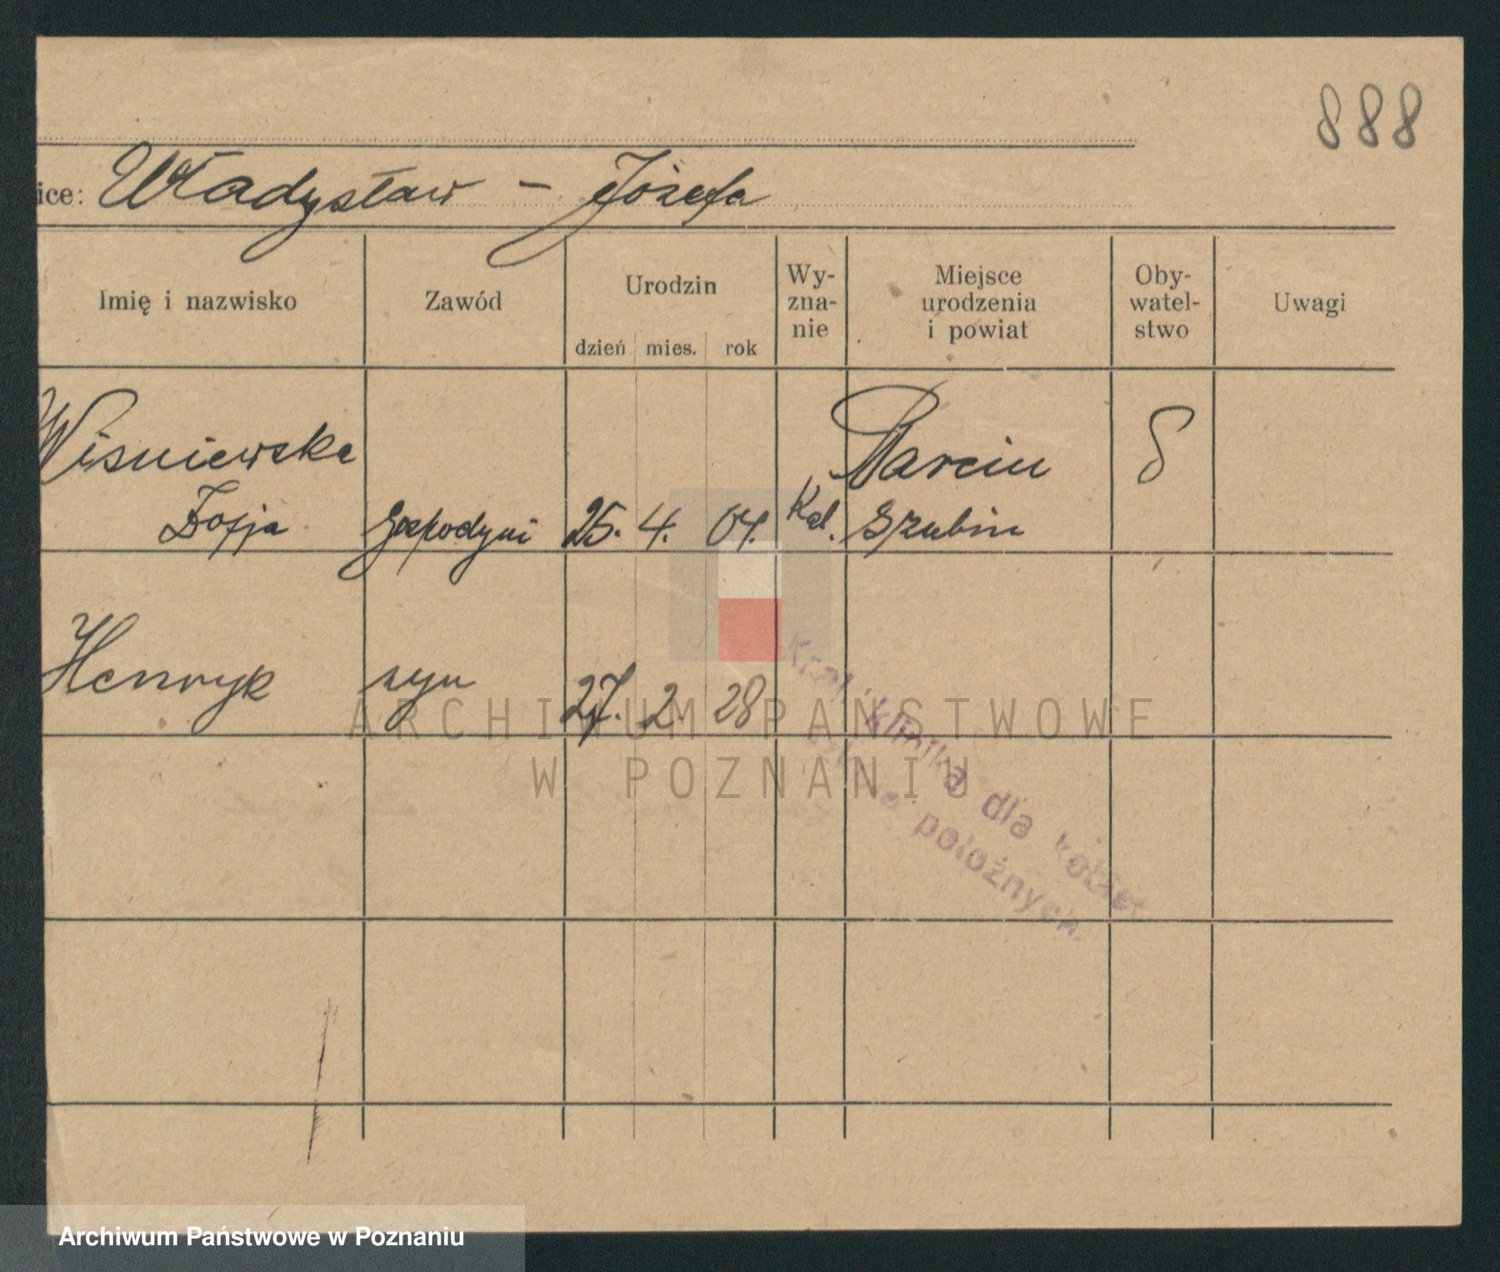 888
ice: Władysław - Józefa
Imię i nazwisko
Zawód
Urodzin
dzień mies. rok
Wy-
zna-
nie
Miejsce
urodzenia
i powiat
Oby-
watel-
stwo
Uwagi
Wiśniewska
Zofja
gospodyni
25. 4. 04.
Kat.
Marcin
Szubin
Henryk
syn
27. 2. 28
Kraj. klinika dla kobiet
położnych.
ARCHIWUM PAŃSTWOWE
W POZNANIU
Archiwum Państwowe w Poznaniu